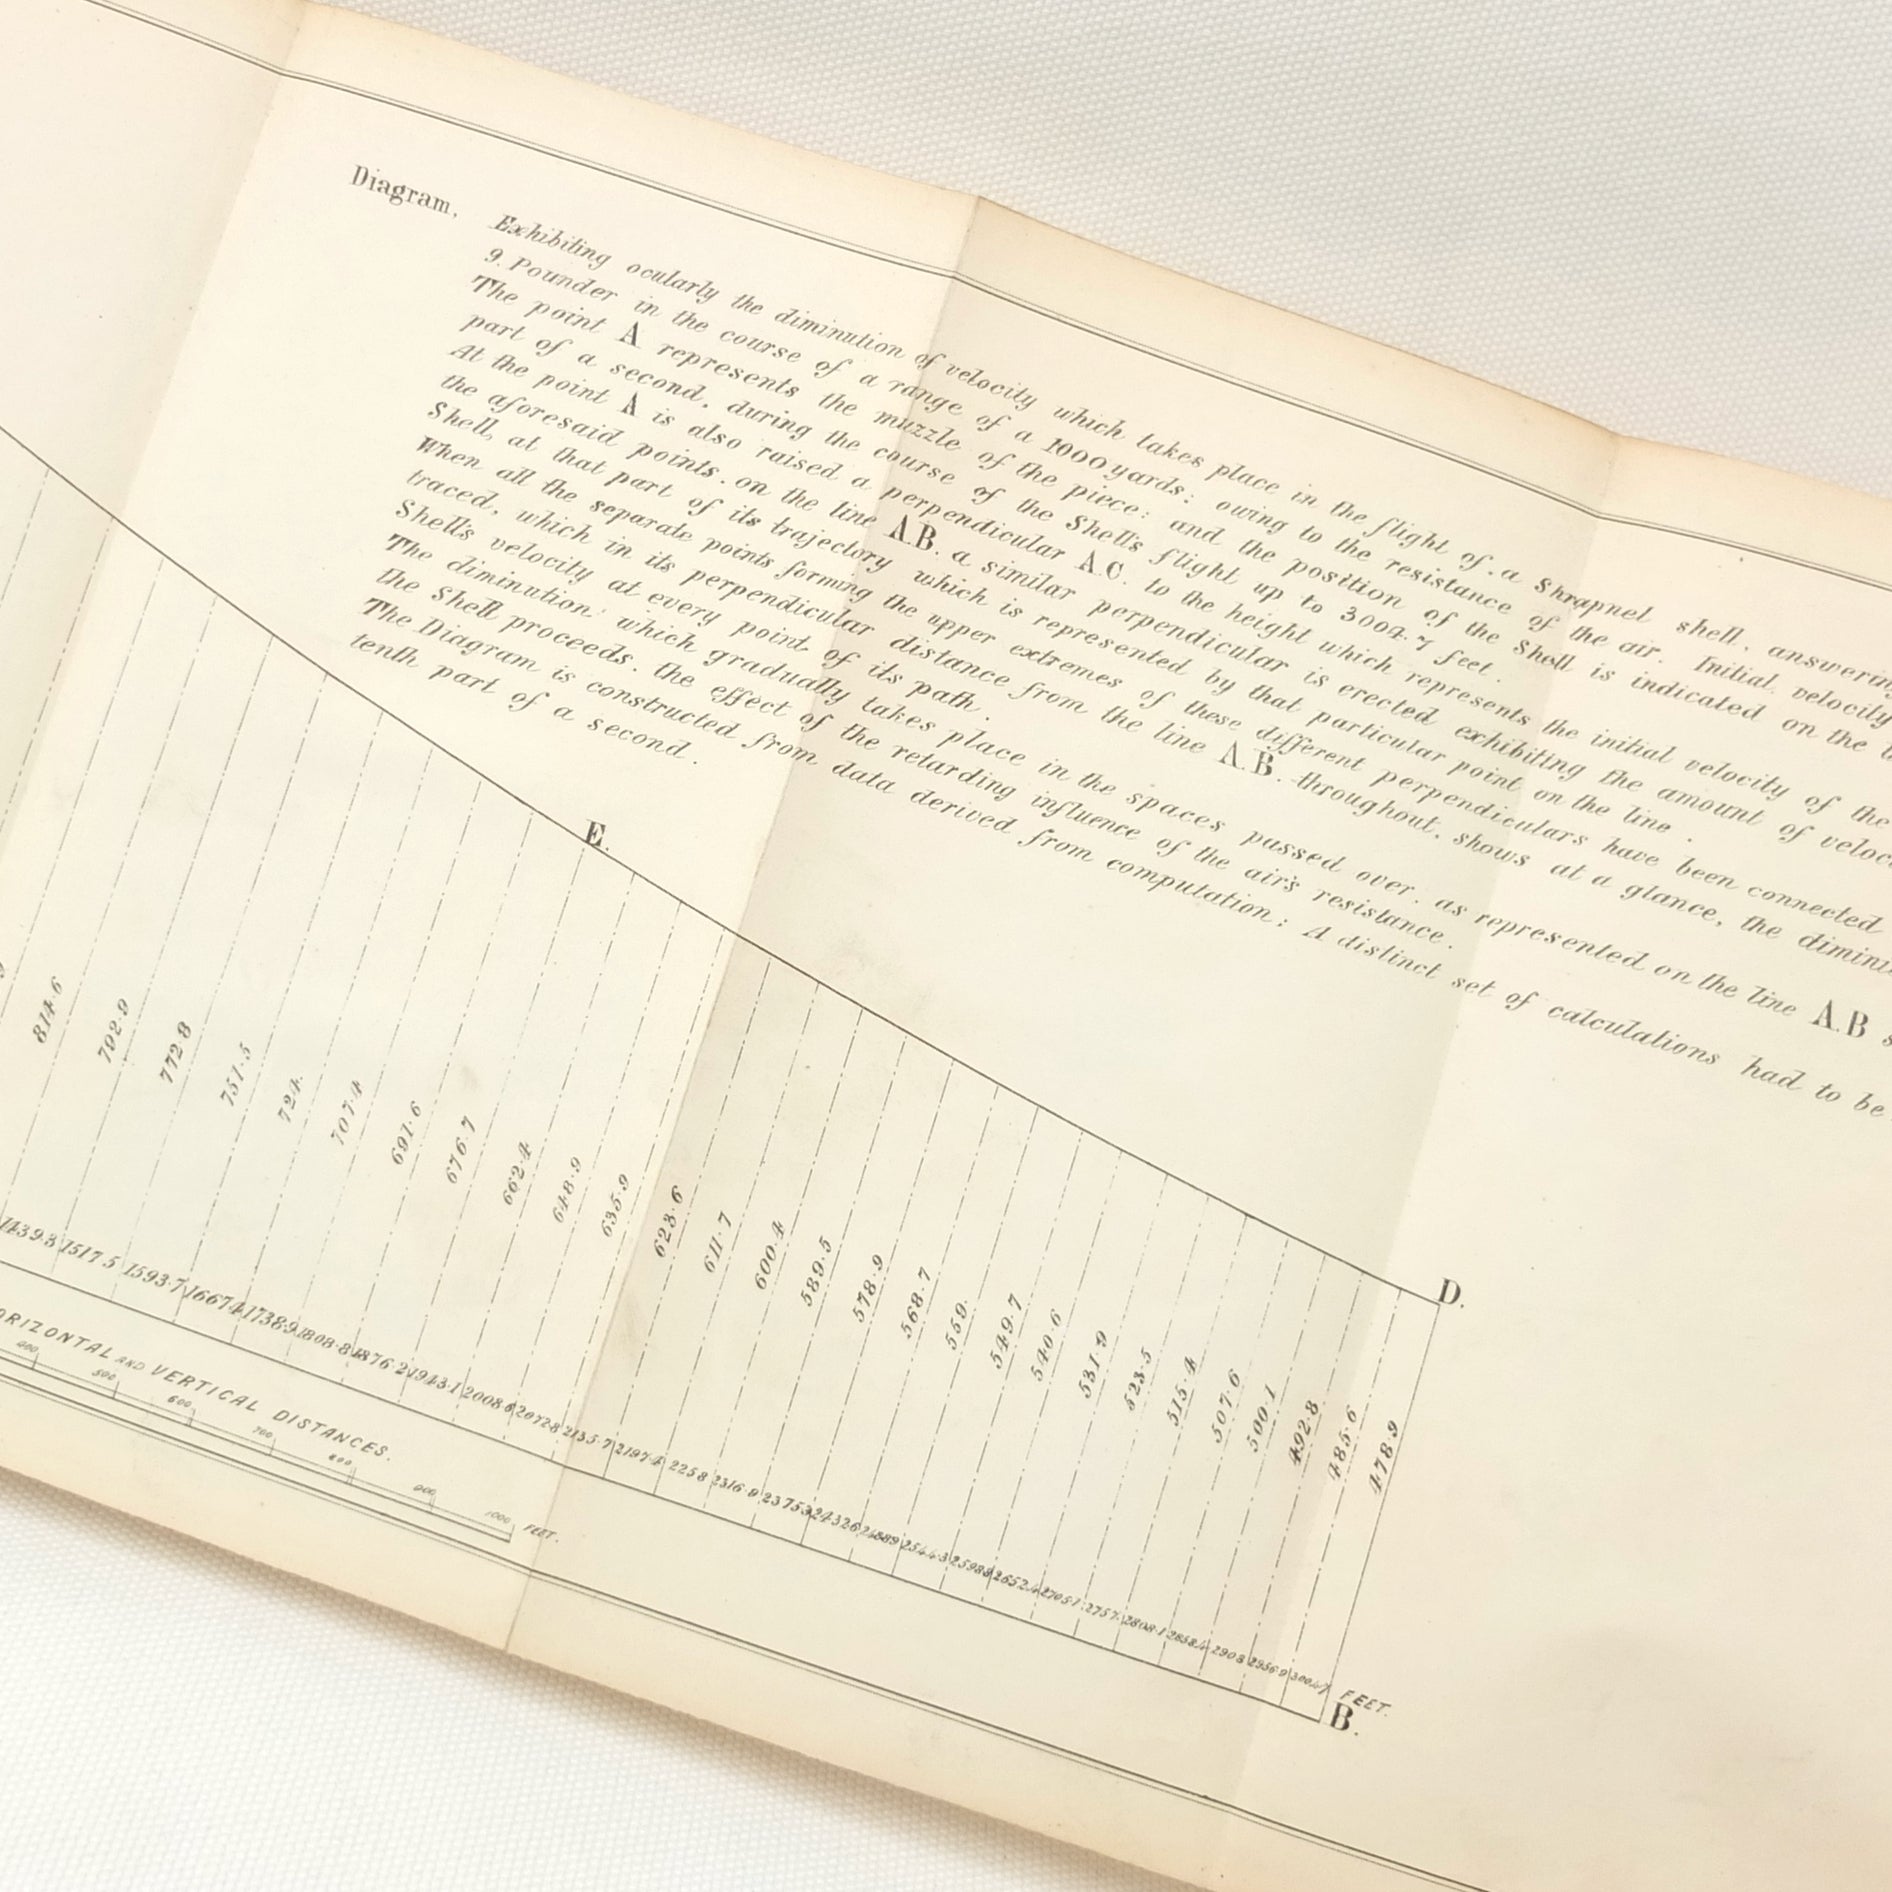 Diagram,
Exhibiting ocularly the diminution of velocity which takes place in the flight of a Shrapnel shell, answering
9. Pounder in the course of a range of a 1000 yards; owing to the resistance of the air. Initial velocity
The point A represents the muzzle of the piece: and the position of the Shell is indicated on the
part of a second, during the course of the Shell's flight up to 3004.7 feet.
At the point A is also raised a perpendicular A.C. to the height which represents the initial velocity of the
the aforesaid points. on the line A.B. a similar perpendicular is erected exhibiting the amount of
Shell, at that part of its trajectory which is represented by that particular point on the line.
When all the separate points forming the upper extremes of these different perpendiculars have been connected
traced, which in its perpendicular distance from the line A.B. throughout, shows at a glance, the
Shell's velocity at every point of its path.
The diminution which gradually takes place in the spaces passed over. as represented on the line A.B
the Shell proceeds. the effect of the retarding influence of the air's resistance.
The Diagram is constructed from data derived from computation; A distinct set of calculations had to be
tenth part of a second.
E.
D.
814.6
792.9
772.8
751.5
724.
707.4
691.6
676.7
662.4
648.9
635.9
623.6
611.7
600.4
589.5
578.9
568.7
559.
549.7
540.6
531.9
523.5
515.4
507.6
500.1
492.8
485.6
478.9
1439.8 1517.5 1593.7 1667.4 1738.9 1808.8 1876.2 1943.1 2008.6 2072.8 2135.7 2197.4 2258 2316.9 2375.3 2432.6 2488.9 2544.3 2598.8 2652.4 2705.1 2757. 2808.1 2858.4 2908 2956.9 3004.7 FEET.
B.
HORIZONTAL AND VERTICAL DISTANCES.
400 500 600 700 800 900 1000 FEET.